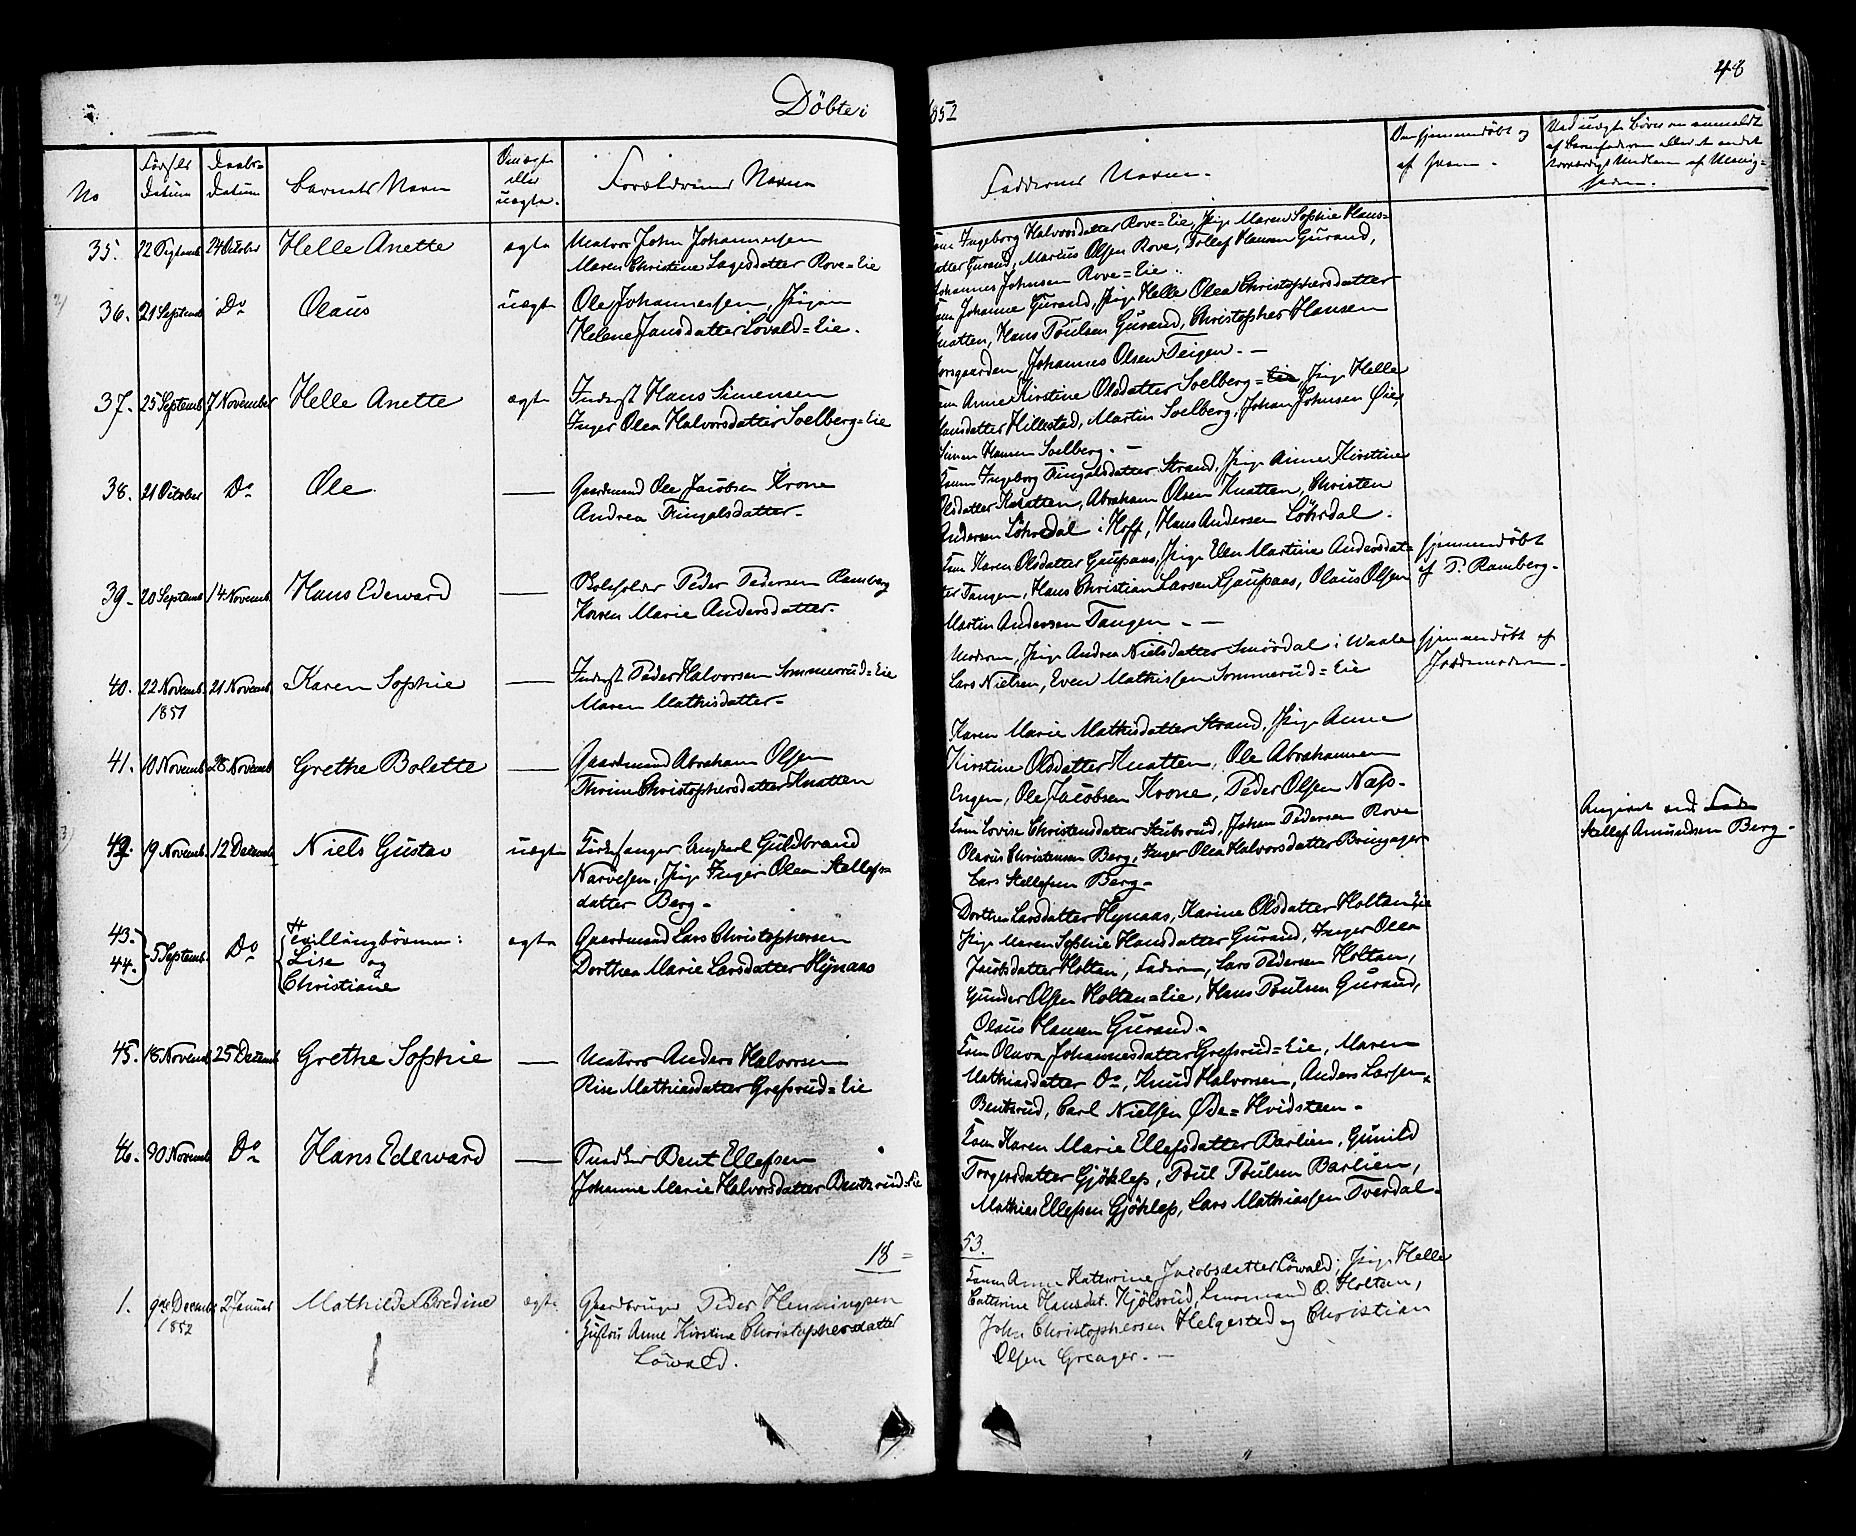 48
Döbte i 1852
No
Fødsels Datum
Daabs- Datum
Barnets Navn
Om ægte eller uægte.
Forældrenes Navne
Faddernes Navne.
Om hjemmedøbt og af hvem.
35.
22 Septemb
24 October
Helle Anette
ægte
Matros John Johannesen
Maren Christine Lagesdatter Rove=Eie
Ingeborg Halvorsdatter Rove=Eie, Pige Maren Sophie Hans-
datter Gurand, Marius Olsen Rove, Tollef Hansen Gurand,
Johannes Johnsen Rove=Eie.
36.
21 Septemb
Do
Olaus
uægte
Ole Johannessen, Pigen
Helene Jansdatter Lövald=Eie.
Johanne Gurand, Pige Helle Olea Christophersdatter
Knatten, Hans Poulsen Gurand, Christopher Hansen
Johannes Olsen Teigen. -
37.
25 Septemb
7 November
Helle Anette
ægte
Inderst Hans Simensen
Inger Olea Halvorsdatter Soelberg=Eie
Anne Kirstine Olsdatter Soelberg=Eie, Pige Helle
Hansdatter Hillestad, Martin Soelberg, Johan Johnsen Öie,
Simen Hansen Soelberg. -
38.
21 October
Do
Ole
—
Gaardmand Ole Jacobsen Krone
Andrea Tingalsdatter.
Ingeborg Tingalsdatter Strand, Pige Anne Kirstine
Olsdatter Knatten, Abraham Olsen Knatten, Christen
Andersen Löhrdal i Hoff, Hans Andersen Löhrdal.
39.
20 Septemb
14 Novemb
Hans Edeward
—
Peder Pedersen Ramberg
Karen Marie Andersdatter.
Karen Olsdatter Gaupaas, Pige Elen Martine Andersdat-
ter Tangen, Hans Christian Larsen Gaupaas, Olaus Olsen
Martin Andersen Tangen - -
hjemmedøbt
af P. Ramberg-
40.
22 Novemb
1851
21 Novemb
Karen Sophie
—
Inderst Peder Halvorsen Sommerud=Eie
Maren Mathisdatter-
Moderen, Pige Andrea Nielsdatter Smördal i Waale
Lars Nielsen, Even Mathissen Sommerud=Eie
hjemmedøbt af
Jordemoderen-
41.
10 Novemb
28 Novemb
Grethe Bolette
—
Gaardmand Abraham Olsen
Thrine Christophersdatter Knatten
Karen Marie Mathisdatter Strand, Pige Anne
Kirstine Olsdatter Knatten, Ole Abrahamsen
Engen, Ole Jacobsen Krone, Peder Olsen Næss-
42.
19 Novemb
12 Decemb
Niels Gustav
uægte
Guldbrand
Narvesen, Pige Inger Olea Stellefs-
datter Berg-
Lovise Christensdatter Stubsrud, Johan Pedersen Rove
Olavus Christensen Berg, Inger Olea Halvorsdatter Bringager
Lars Stellefsen Berg-
Angivet ved Fad
Stellef Amundsen Berg-
43.
44.
5 Septemb
Do
Tvillingbörnene:
Lise og
Christiane
ægte
Gaardmand Lars Christophersen
Dorthea Marie Larsdatter Hynaas
Dorthea Larsdatter Hynaas, Karine Olsdatter Holtan Eie
Pige Maren Sophie Hansdatter Gurand, Inger Olea
Jacobsdatter Holtan, Faderen, Lars Pedersen Holtan,
Gunder Olsen Holtan=Eie, Hans Poulsen Gurand,
Olaus Hansen Gurand-
45.
18 Novemb
25 Decemb
Grethe Sophie
—
Matros Anders Halvorsen
Rise Mathiasdatter Grefsrud=Eie
Olava Johannesdatter Grefsrud=Eie, Maren
Mathiasdatter Do, Knud Halvorsen, Anders Larsen
Bentsrud, Carl Nielsen Öde=Hvidsteen-
46.
30 Novemb
Do
Hans Edeward
—
Snedker Bent Ellefsen
Johanne Marie Halvorsdatter Bentsrud=Eie
Karen Marie Ellefsdatter Barlien, Gunild
Torgersdatter Gjöklep, Poul Poulsen Barlien,
Mathias Ellefsen Gjöklep, Lars Mathiassen Tverdal-
18 53.
1.
9de Decemb
1852
2 Januar
Mathilde Bredine
ægte
Gaardbruger Peder Henningsen
Hustru Anne Kirstine Christophersdatter
Löwald.
Anne Katerine Jacobsdatter Löwald, Pige Helle
Catterine Hansdat. Kjölsrud, Lensmand O. Holtan,
John Christophersen Helgestad og Christian
Olsen Greager. -